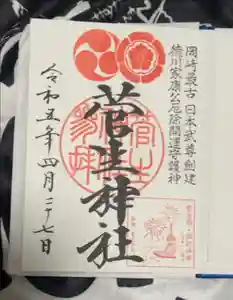 岡崎最古 日本武尊創建
徳川家康公厄除開運守護神
菅生神社
令和五年四月二十七日